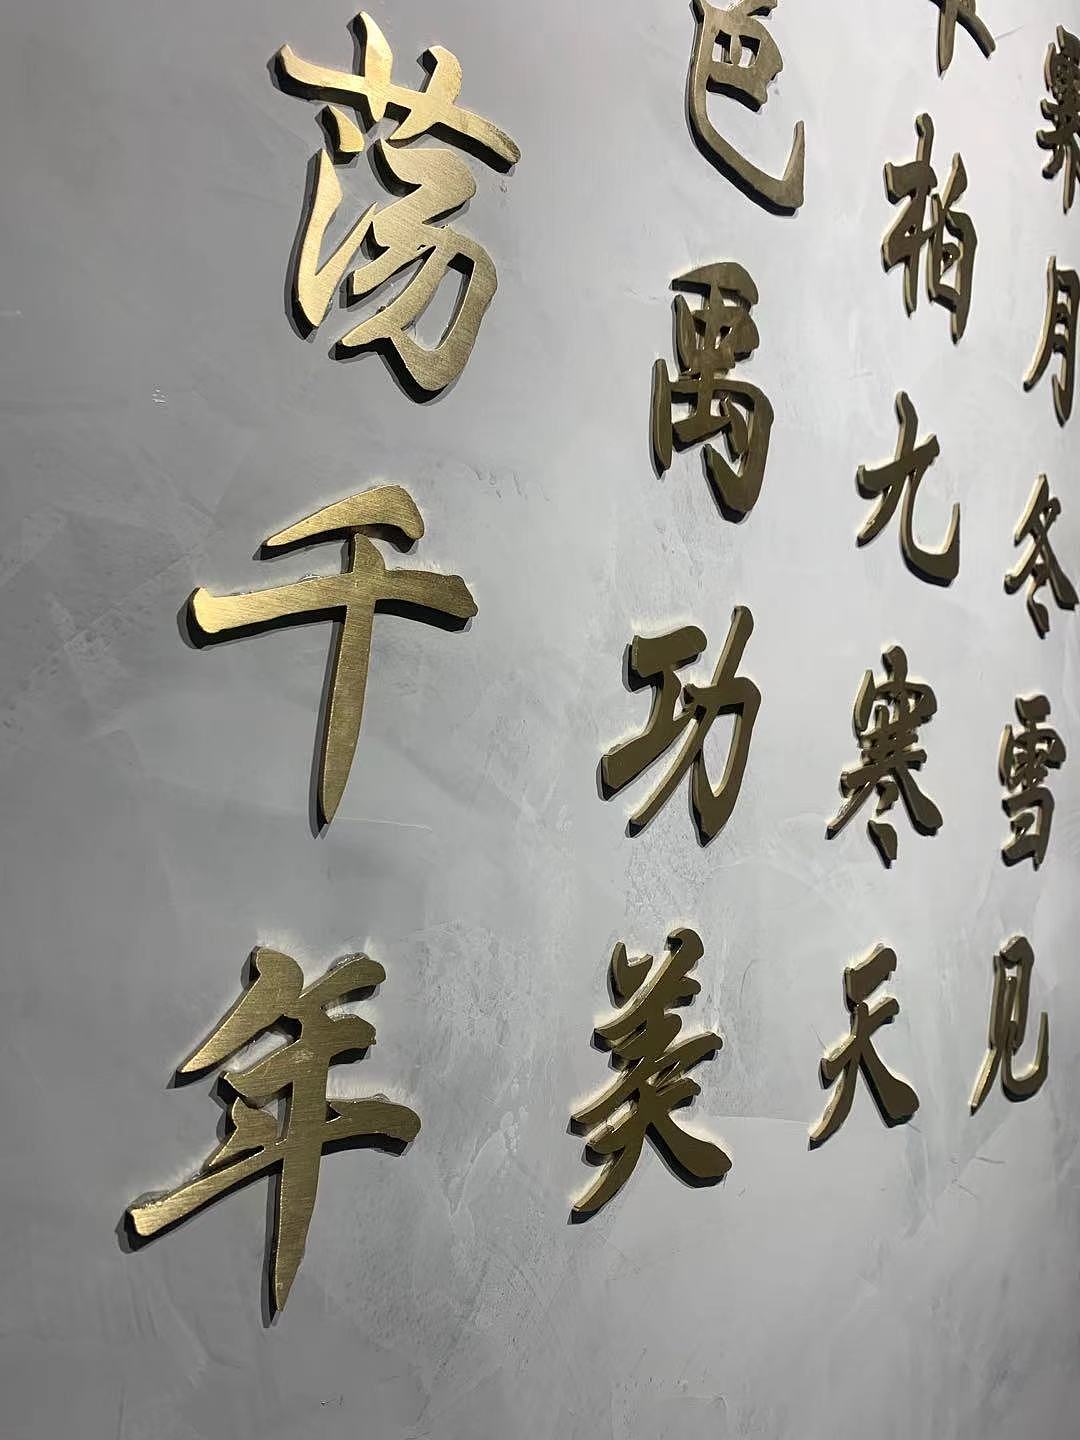 月冬雪见
柏九寒天
禹功美
荡千年